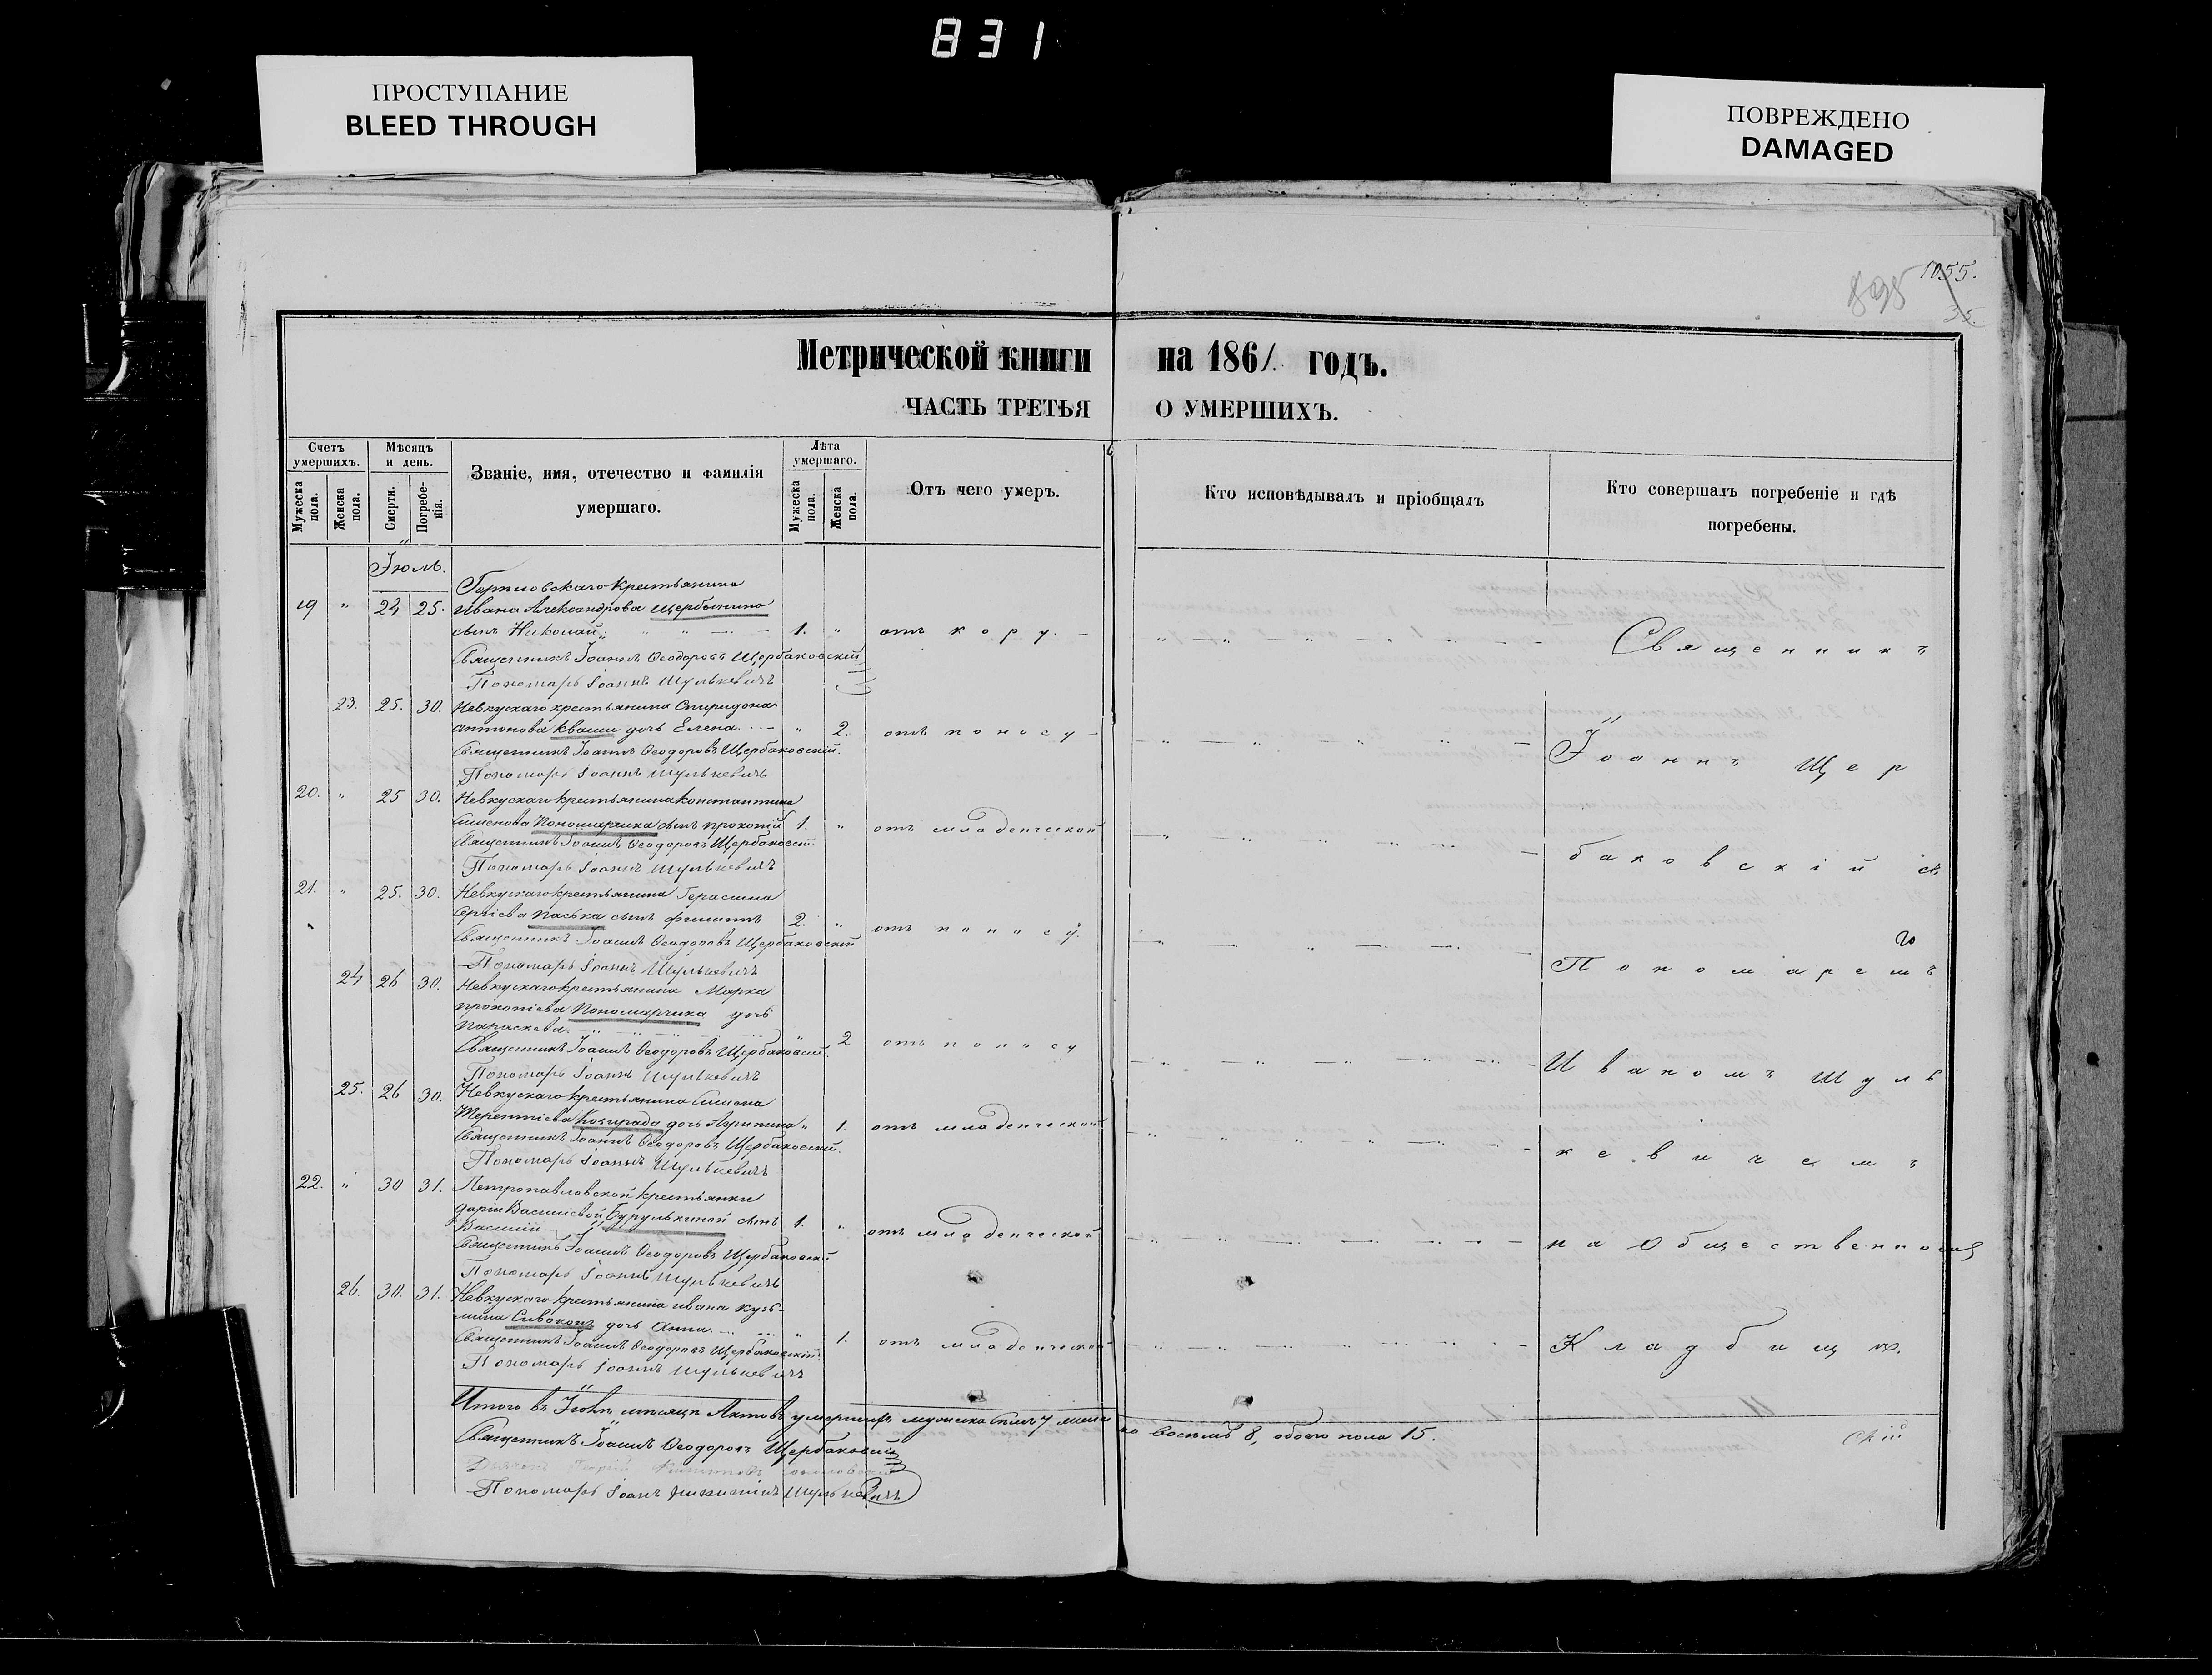 831
ПРОСТУПАНИЕ
BLEED THROUGH
ПОВРЕЖДЕНО
DAMAGED
1055.
895
35.
Метрической книги на 1861. годъ.
ЧАСТЬ ТРЕТЬЯ О УМЕРШИХЪ.
Счетъ умершихъ.
Мужеска пола.
Женска пола.
Мѣсяцъ и день.
Смерти.
Погребенія.
Званіе, имя, отечество и фамилія умершаго.
Лѣта умершаго.
Мужеска пола.
Женска пола.
Отъ чего умеръ.
Кто исповѣдывалъ и пріобщалъ
Кто совершалъ погребеніе и гдѣ погребены.
Іюль.
крестьянина
19 " 24 25. Ивана Александрова Щербинина
сынъ Николай 1. " отъ кору.
Священникъ Іоаннъ Ѳеодоровъ Щербаковскій
Пономарь Іоаннъ Шулькевичъ
23. 25. 30. Невкускаго крестьянина Спиридона
Антонова Кваши дочь Елена " 2. отъ поносу
Священникъ Іоаннъ Ѳеодоровъ Щербаковскій.
Пономарь Іоаннъ Шулькевичъ
20. " 25 30. Невкускаго крестьянина Константина
Симонова Пономарчика сынъ Прокопій 1. " отъ младенческой
Священникъ Іоаннъ Ѳеодоровъ Щербаковскій
Пономарь Іоаннъ Шулькевичъ
21. " 25. 30. Невкускаго крестьянина Герасима
Сергіева Паська сынъ Филиппъ 2. " отъ поносу.
Священникъ Іоаннъ Ѳеодоровъ Щербаковскій
Пономарь Іоаннъ Шулькевичъ
24 26 30. Невкускаго крестьянина Марка
Прокопіева Пономарчика дочь
Параскева " 2 отъ поносу
Священникъ Іоаннъ Ѳеодоровъ Щербаковскій.
Пономарь Іоаннъ Шулькевичъ
25. 26 30. Невкускаго крестьянина Симона
Терентіева дочь " 1. отъ младенческой
Священникъ Іоаннъ Ѳеодоровъ Щербаковскій.
Пономарь Іоаннъ Шулькевичъ
22. " 30 31. Петропавловской крестьянки
Даріи Василіевой Бурулькиной сынъ 1. " отъ младенческой
Василій
Священникъ Іоаннъ Ѳеодоровъ Щербаковскій
Пономарь Іоаннъ Шулькевичъ
26. 30. 31. Невкускаго крестьянина Ивана Кузь-
мина Сивоконь дочь Анна " 1. отъ младенческой
Священникъ Іоаннъ Ѳеодоровъ Щербаковскій
Пономарь Іоаннъ Шулькевичъ
Священникъ
Іоаннъ Щер
баковскій съ
Пономаремъ
Иваномъ Шуль
кевичемъ
на Общественномъ
Кладбищѣ.
Итого въ Іюлѣ мѣсяцѣ умершихъ мужска 7 восемь 8, обоего пола 15.
Священникъ Іоаннъ Ѳеодоровъ Щербаковскій
Пономарь Іоанъ Шулькевичъ
скій